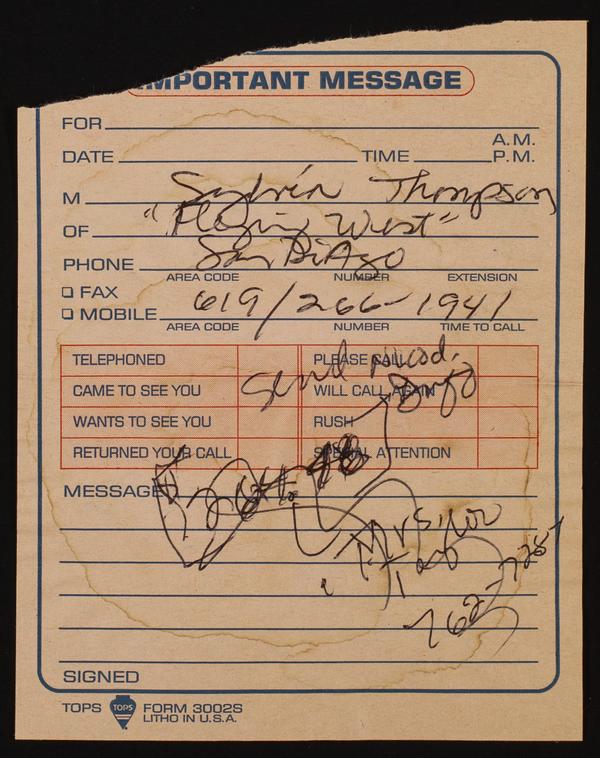 IMPORTANT MESSAGE
FOR
A.M.
DATE TIME P.M.
M Sylvia Thompson
OF "Flying West"
PHONE San DiAgo
AREA CODE NUMBER EXTENSION
FAX
MOBILE 619/266-1941
AREA CODE NUMBER TIME TO CALL
TELEPHONED PLEASE CALL
Send
CAME TO SEE YOU WILL CALL AGAIN
Info
WANTS TO SEE YOU RUSH
RETURNED YOUR CALL SPECIAL ATTENTION
MESSAGE
762-7287
SIGNED
TOPS TOPS FORM 3002S
LITHO IN U.S.A.